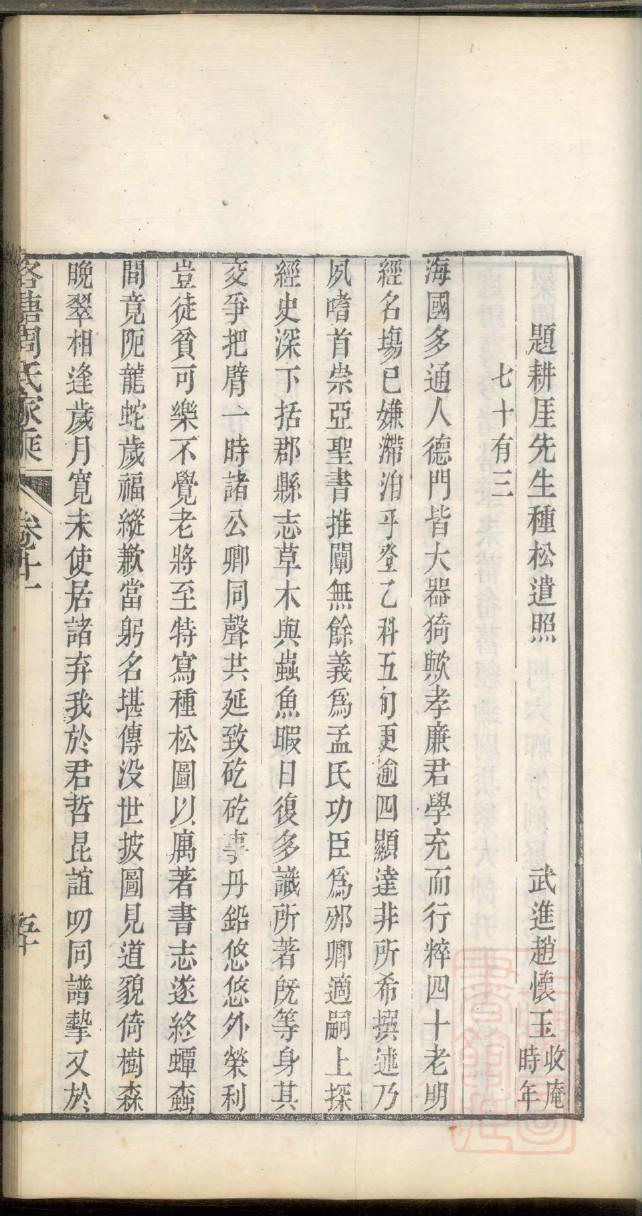 題耕厓先生種松遺照 武進趙懷玉收庵時年
七十有三
海國多通人德門皆大器猗歟孝廉君學充而行粹四十老明
經名場已嫌滯洎乎登乙科五旬更逾四顯達非所希撰述乃
夙嗜首崇亞聖書推闡無餘義為孟氏功臣為邠卿適嗣上探
經史深下括郡縣志草木與蟲魚暇日復多識所著既等身其
交爭把臂一時諸公卿同聲共延致矻矻事丹鉛悠悠外榮利
豈徒貧可樂不覺老將至特寫種松圖以厲著書志遂終蟫蠹
間竟阨龍蛇歲福縱歉當躬名堪傳没世披圖見道貌倚樹森
晚翠相逢歲月寬未使居諸弃我於君哲昆誼叨同譜摯又於
周氏家乘 卷廿一